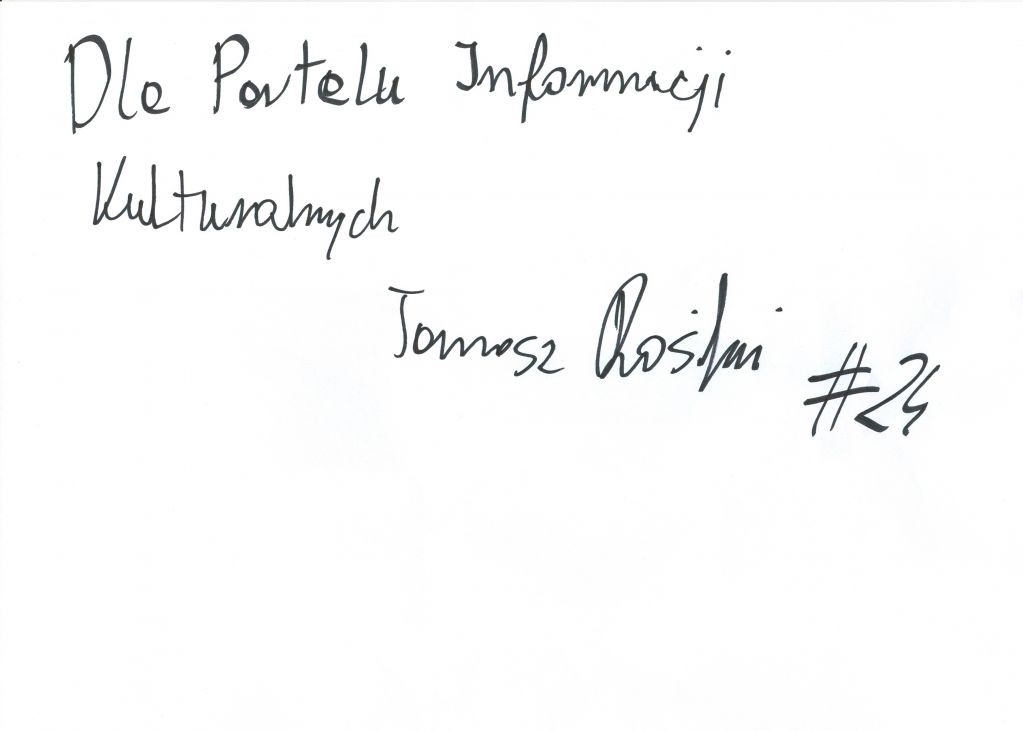 Dla Portalu Informacji
Kulturalnych
Tomasz
#24